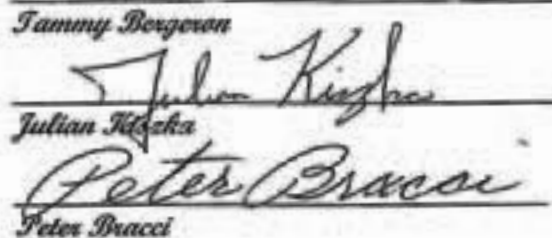 Tammy Bergeron
Julian Kiszka
Julian Kiszka
Peter Bracci
Peter Bracci